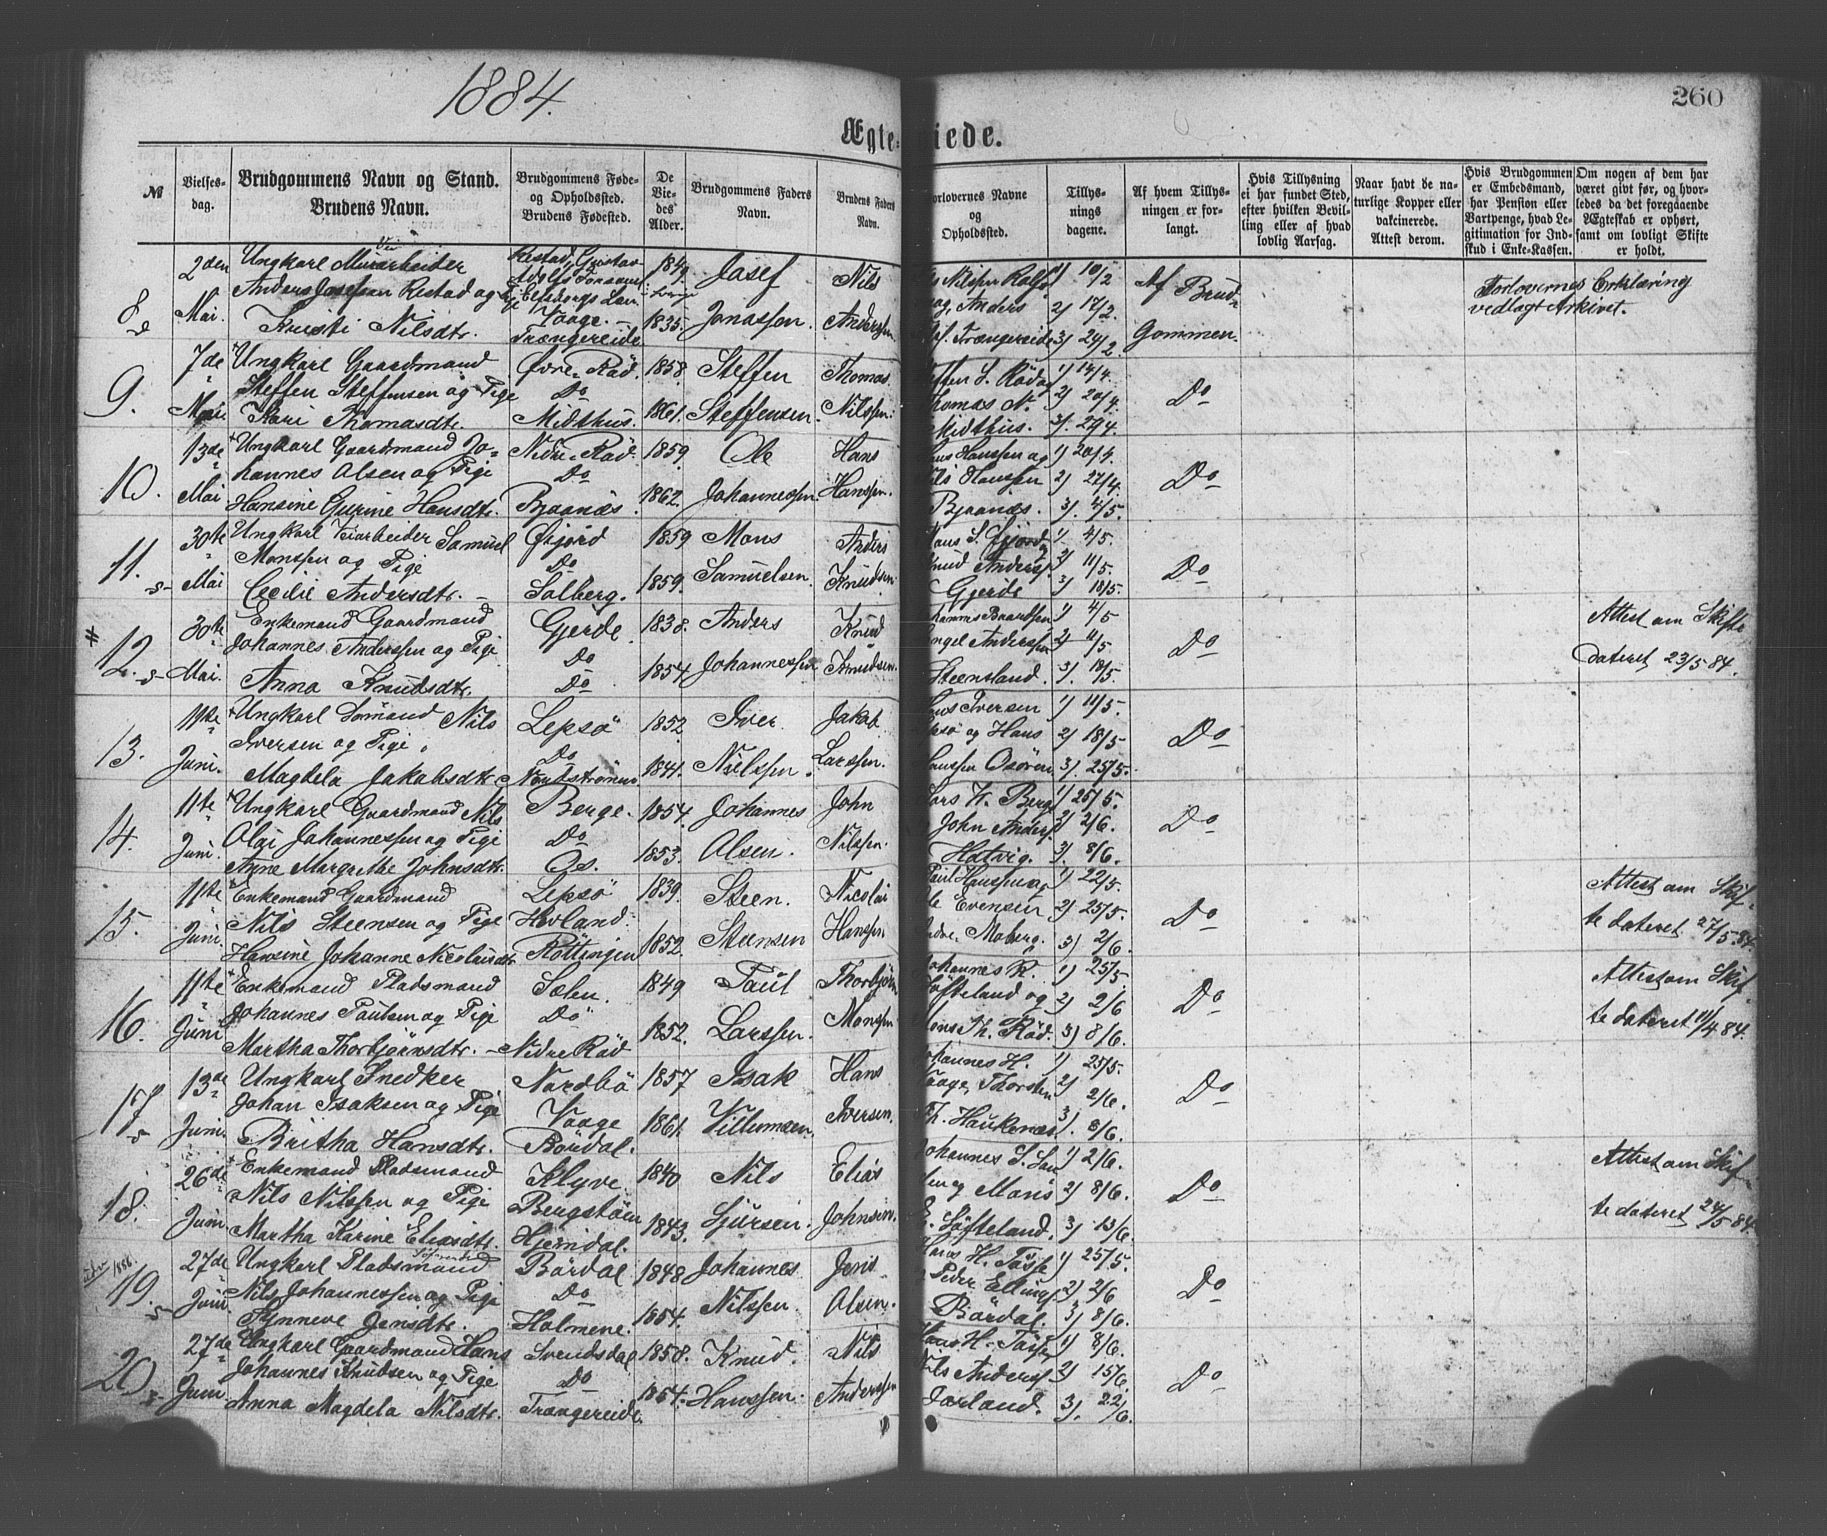 1884.
260
Ægte- iede.
№
Vielses-
dag.
Brudgommens Navn og Stand.
Brudens Navn.
Brudgommens Føde-
og Opholdssted.
Brudens Fødested.
De
Vie-
des
Alder.
Brudgommens Faders
Navn.
Brudens Faders
Navn.
orlovernes Navne
og
Opholdssted.
Tillys-
nings
dagene.
Af hvem Tillys-
ningen er for-
langt.
Hvis Tillysning
ei har fundet Sted,
efter hvilken Bevil-
ling eller af hvad
lovlig Aarsag.
Naar havt de na-
turlige Kopper eller
vakcinerede.
Attest derom.
Hvis Brudgommen
er Embedsmand,
har Pension eller
Vartpenge, hvad Le-
gitimation for Ind-
skud i Enke-Kassen.
Om nogen af dem har
været givt før, og hvor-
ledes da det foregaaende
Ægteskab er ophørt,
samt om lovligt Skifte
er holdt.
8
2den
Mai.
Ungkarl Murarbeider
Anders Josefsen Restad og Pige
Kristi Nilsdtr.
Restad, Gustav
Adolfs
Elfsborgs Len
Vaage.
Trængereide
1849.
1835.
Josef
Jonassen.
Nils
Andersen
Nilsen
Anders
Trængereide
1) 10/2
2) 17/2.
3) 24/2
Af Brud-
Gommen.
Forlovernes Erklæring
vedlagt Arkivet.
9.
7de
Mai.
Ungkarl Gaardmand
Steffen Steffensen og Pige
Kari Thomasdtr.
Øvre-Räd.
Do
Midthus.
1858.
1861.
Steffen
Steffensen.
Thomas
Nilssen.
S. Röd og
Thomas N.
Midthus.
1) 14/4.
2) 20/4
3) 27/4.
Do
10.
13de
Mai
Ungkarl Gaardmand Jo-
hannes Olsen og Pige
Hansine Gurine Hansdtr.
Nedre-Räd.
Do
Bjaanæs.
1859
1862.
Ole
Johannessen.
Hans
Hanssen.
Hanssen og
Hanssen
Bjaanæs.
1) 20/4.
2) 27/4.
3) 4/5.
Do
11.
30te
Mai
Ungkarl Veiarbeider Samuel
Monssen og Pige
Cecilie Andersdtr.
Øfjord
Do
Solberg.
1859
1859.
Mons
Samuelsen.
Anders
Knudsen.
S. Øfjord
Knud Anders.
Gjerde
1) 4/5.
2) 11/5.
3) 18/5.
Do
12.
30te
Mai.
Enkemand Gaardmand
Johannes Anderssen og Pige
Anna Knudsdtr.
Gjerde
Do
Do
1838.
1854
Anders
Johannessen
Knud
Knudsen.
Anderssen
Steensland.
1) 4/5
2) 11/5
3) 18/5.
Do
Attest om Skifte
dateret 23/5 84.
13.
11te
Juni.
Ungkarl Sømand Nils
Iversen og Pige
Magdela Jakobsdtr.
Lepsö
Do
Nordstrømen
1852.
1841.
Iver
Nielssen.
Jakob
Larssen.
Iversen
Lepsö og Hans
Hanssen Osören
1) 11/5.
2) 18/5
3) 25/5.
Do
14.
11te
Juni.
Ungkarl Gaardmand Nils
Olai Johannessen og Pige
Anne Margrethe Johnsdtr.
Berge.
Do
Os.
1854.
1853.
Johannes
Olsen.
John
Nilssen.
Lars H. Berge
John Anders.
Hatvig.
1) 25/5.
2) 2/6.
3) 8/6.
Do
15.
11te
Juni.
Enkemand Gaardmand
Nils Steensen og Pige
Hansine Johanne Nicolaisdtr.
Lepsö
Hovland
Røttingen
1839.
1852.
Steen.
Steensen
Nicolai
Hanssen
Hanssen og
Evensen
Moberg.
1) 22/5.
2) 25/5.
3) 2/6.
Do
Attest om Skif-
te dateret 27/5. 84.
16.
11te
Juni
Enkemand Pladsmand
Johannes Paulsen og Pige
Martha Thorbjørnsdtr.
Sælen.
Do
Nedre Räd
1849
1852.
Paul
Larssen.
Thorbjørn
Monssen
Johannes R.
Söfteland og
Mons Th. Räd.
1) 25/5
2) 2/6
3) 8/6.
Do
Attest om Skif-
te dateret 11/4 84.
17.
13de
Juni
Ungkarl Snedker
Johan Isaksen og Pige
Britha Hansdtr.
Nordbö
Vaage
Bördal.
1857
1861.
Isak
Villumsen.
Hans
Iversen.
Johannes H.
Vaage, Thorsten
Th. Haukenæs
1) 25/5
2) 2/6.
3) 8/6.
Do
18.
26de
Juni.
Enkemand Pladsmand
Nils Nilssen og Pige
Martha Karine Eliasdtr.
Klyve.
Bengström
Hjemdal.
1840
1843.
Nils
Sjursen.
Elias
Johnsen.
Johannes S.
Söfteland.
1) 2/6.
2) 8/6.
3) 13/6.
Do
Attest om Skif-
te dateret 24/5 84.
19.
1886.
27de
Juni
Ungkarl Pladsmand
Nils Johannessen og Pige
Synneve Jensdtr.
Bördal
Do
Holmene.
1848
1854.
Johannes
Nilssen.
Jens
Olsen.
Hans H. Tösse
Peder Ellings.
Bördal.
1) 25/5.
2) 2/6
3) 8/6.
Do
20
27de
Juni
Ungkarl Gaardmand Hans
Johannes Knudsen og Pige
Anna Magdela Nilsdtr.
Svendsdal
Do
Trængereide
1858.
1854.
Knud.
Hanssen.
Nils
Anderssen
Hans H. Tösse
Nils Anders.
1) 8/6.
2) 15/6.
3) 22/6.
Do